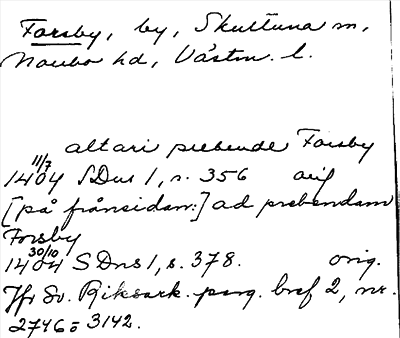 Forsby, by, Skultuna sn,
Norrbo hd, Västm. l.
altari prebende Forsby
11/7
1404 SDns 1, s. 356 orig
[på frånsidan:] ad prebendam
Forsby
30/10
1404 SDns 1, s. 378. orig.
Jfr Sv. Riksark. perg. bref 2, nr.
2746 = 3142.